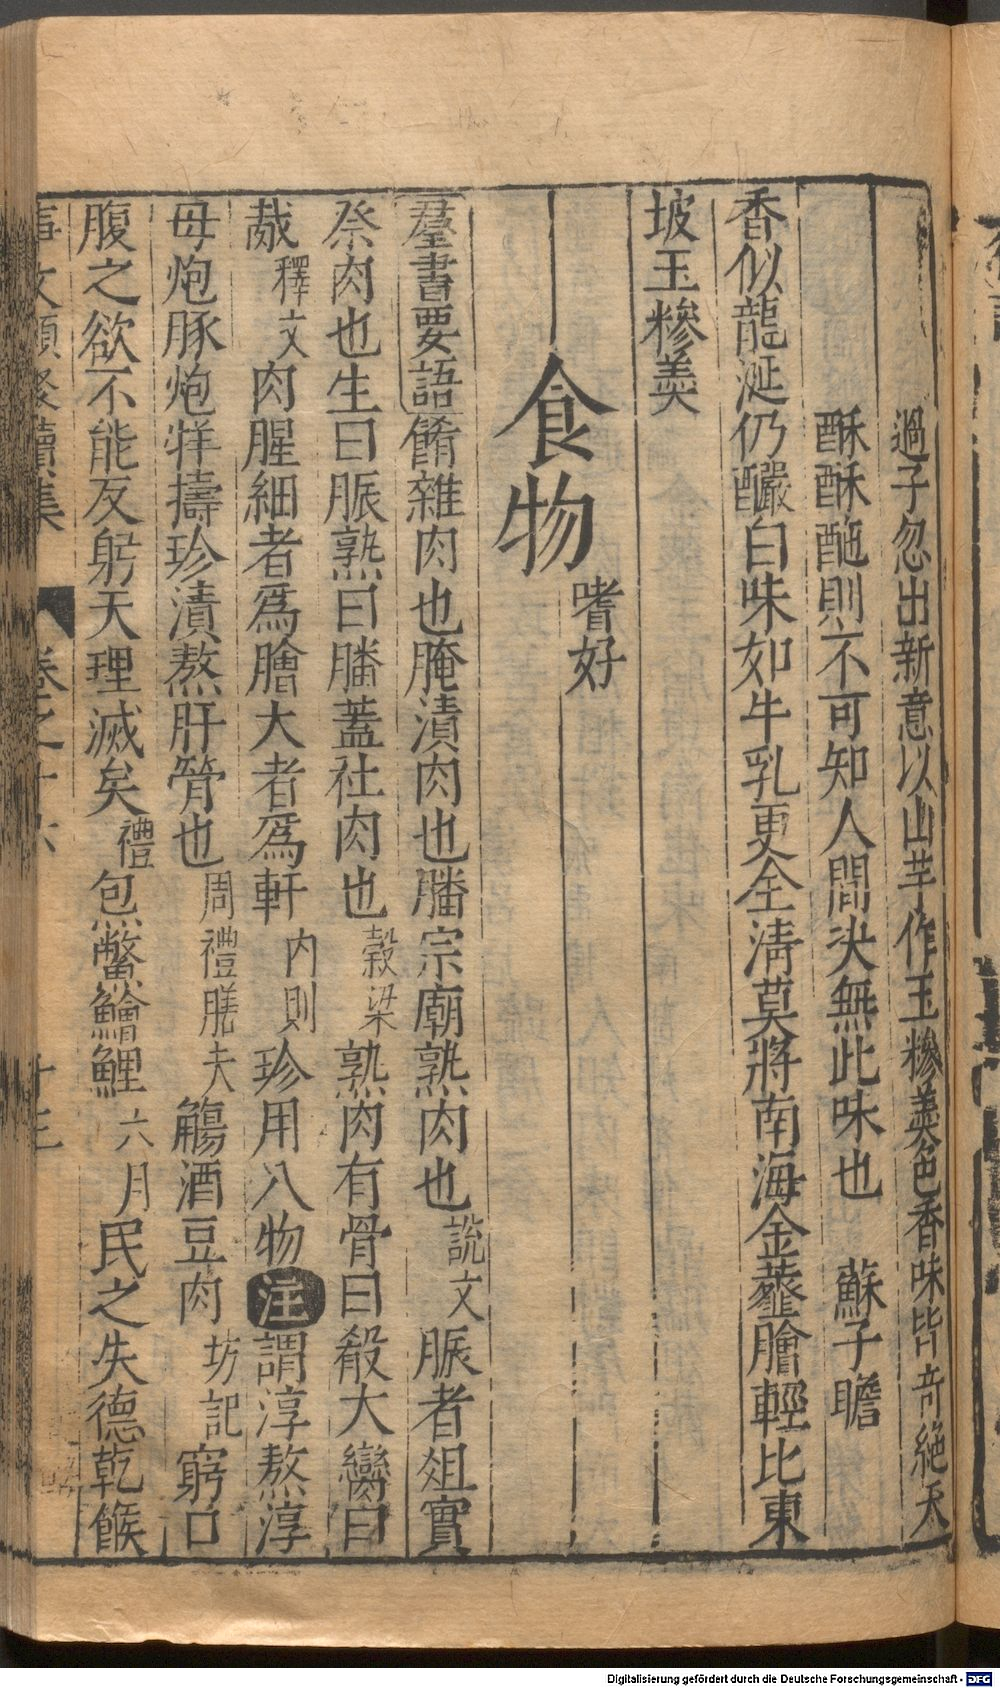 過子忽出新意以山芋作玉糝羹色香味皆奇絕天
酥酥酏則不可知人間決無此味也　蘇子瞻
香似龍涎仍釅白味如牛乳更全淸莫將南海金虀膾輕比東
坡玉糝羹
食物　嗜好
羣書要語餚雜肉也腌漬肉也膰宗廟熟肉也說文脤者俎實
祭肉也生曰脤熟曰膰蓋社肉也穀梁熟肉有骨曰殽大臠曰
胾釋文肉腥細者爲膾大者爲軒內則珍用八物注謂淳熬淳
母炮豚炮牂擣珍漬熬肝膋也周禮膳夫觴酒豆肉坊記窮口
腹之欲不能反躬天理滅矣禮炰鱉鱠鯉六月民之失德乾餱
事文類聚續集　卷之十六　十三
Digitalisierung gefördert durch die Deutsche Forschungsgemeinschaft - DFG